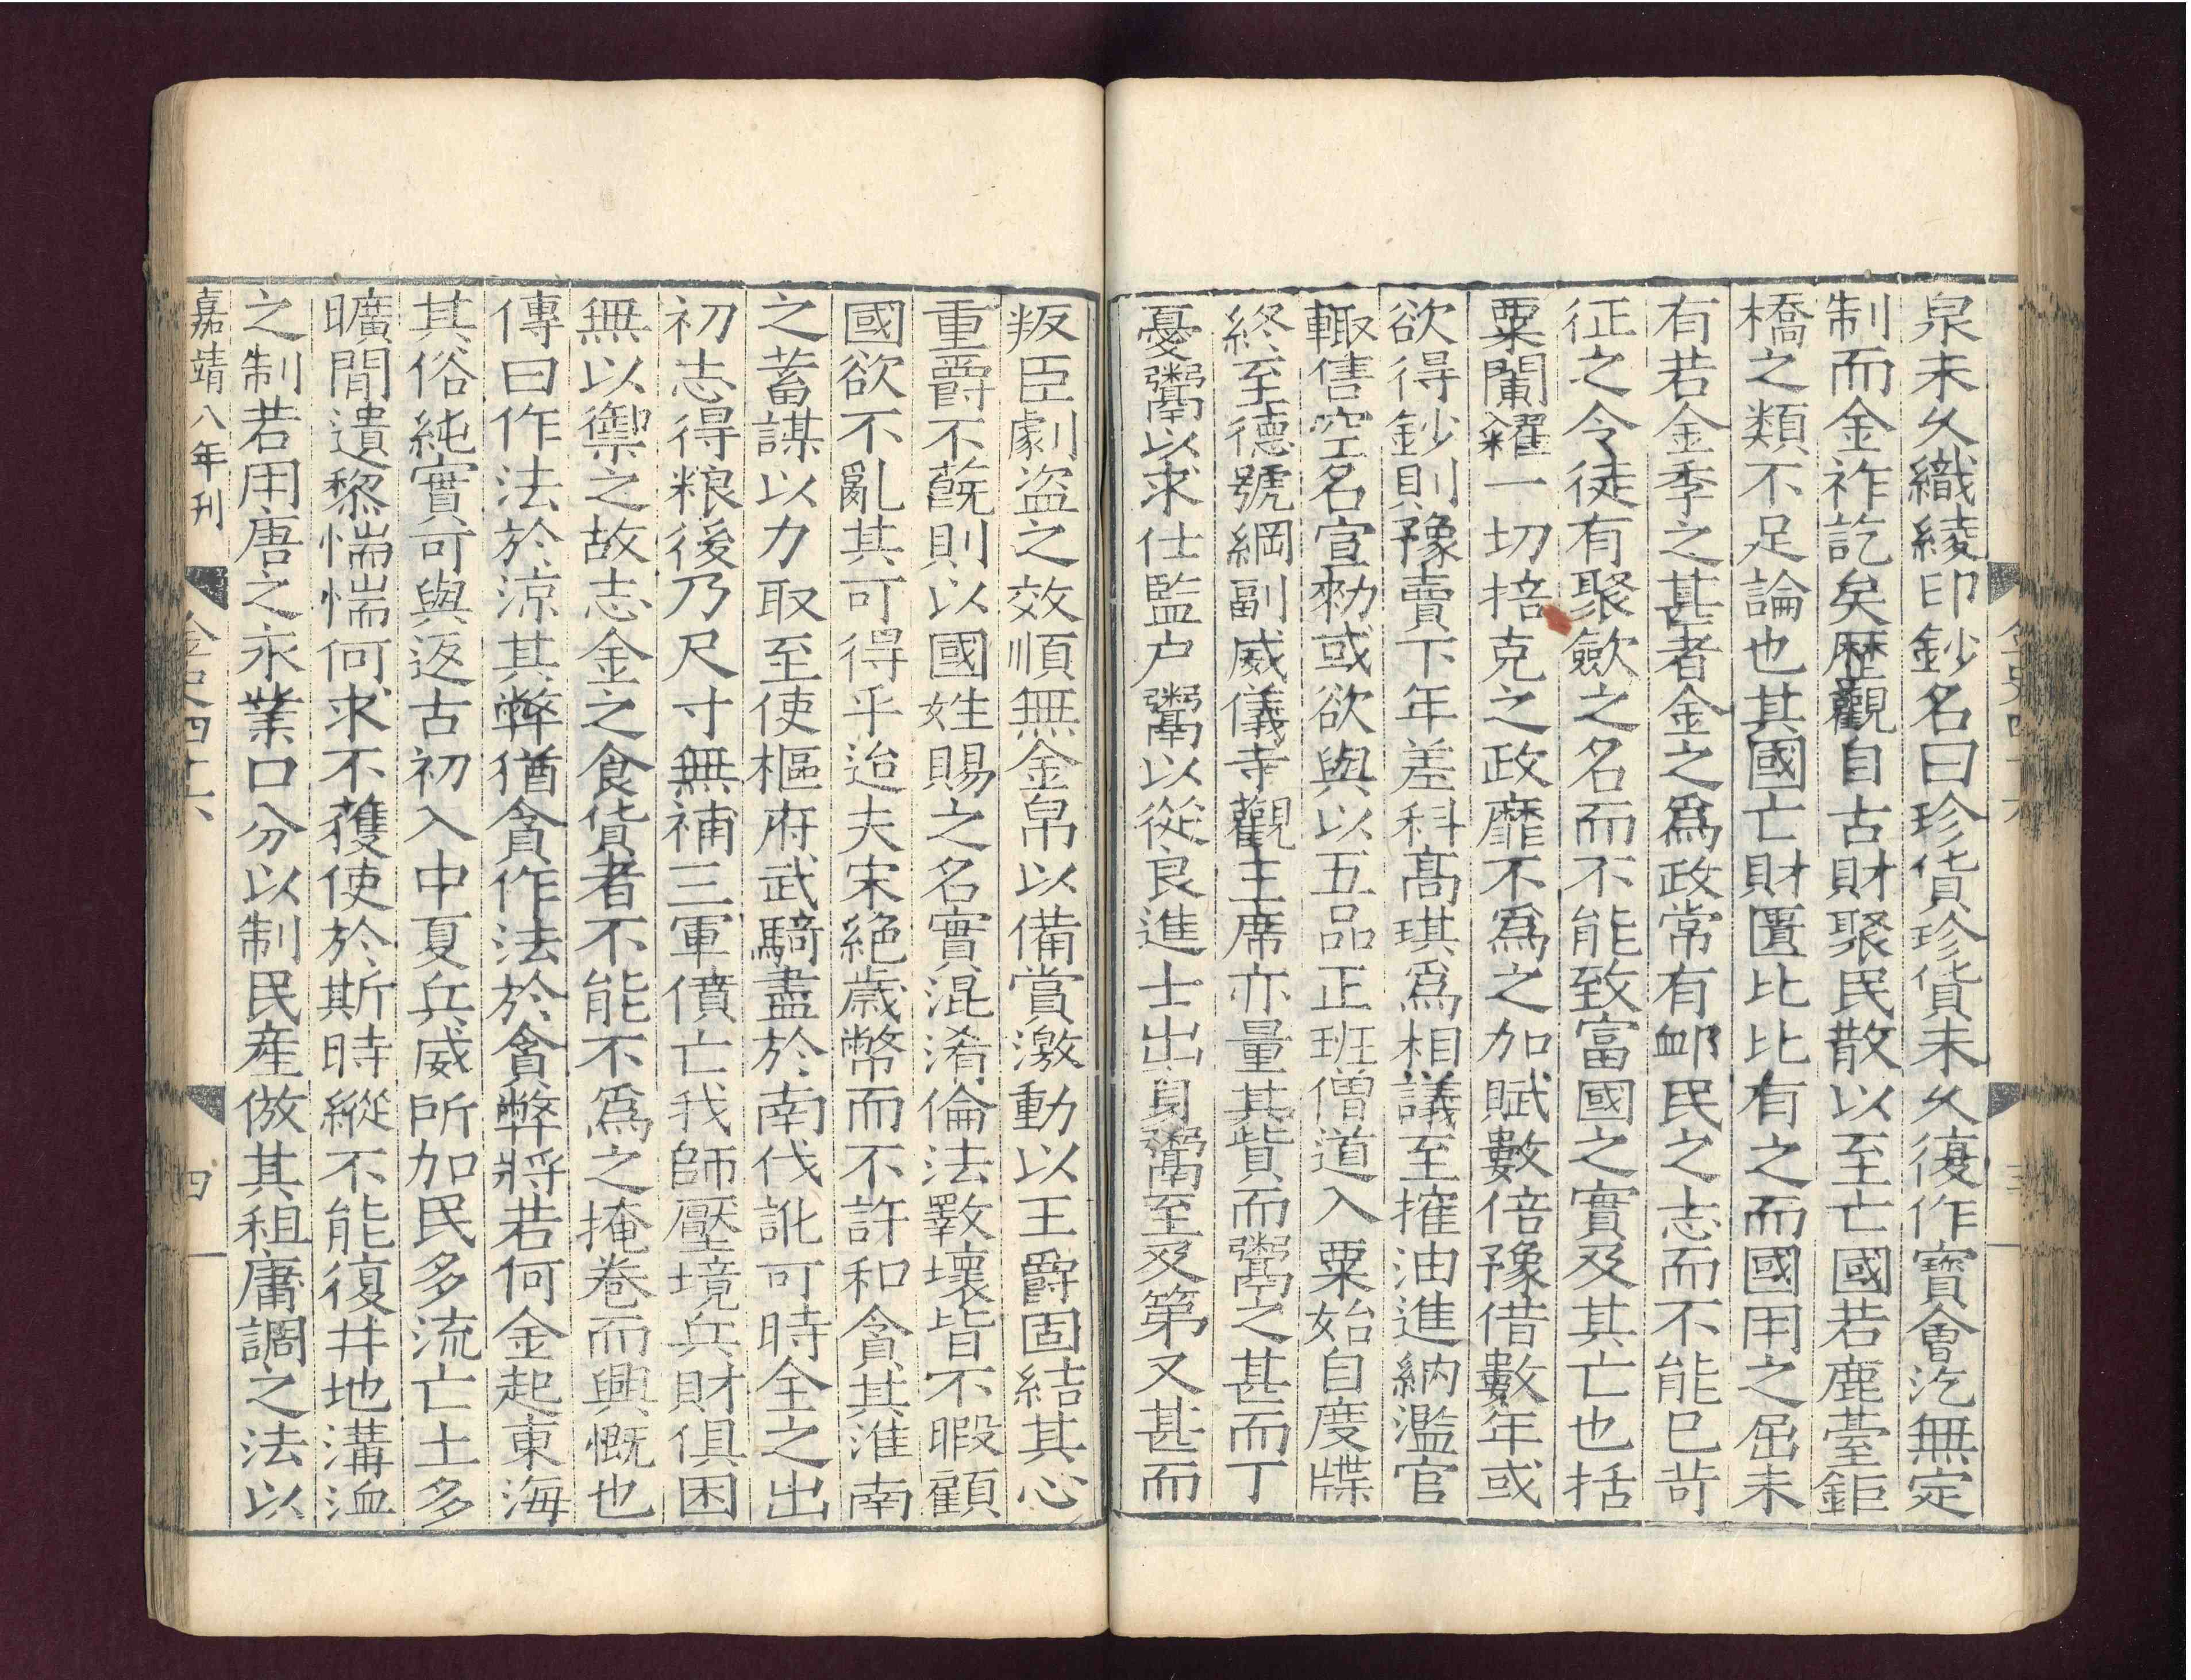 泉未久織綾印鈔名曰珍貨珍貨未久復作寶會汔無定
制而金祚訖矣歷觀自古財聚民散以至亡國若鹿臺鉅
橋之類不足論也其國亡財匱比比有之而國用之屈未
有若金季之甚者金之爲政常有卹民之志而不能已苛
征之令徒有聚斂之名而不能致富國之實及其亡也括
粟闌糴一切掊克之政靡不爲之加賦數倍豫借數年或
欲得鈔則豫賣下年差科髙琪爲相議至搉油進納濫官
輙售空名宣勑或欲與以五品正班僧道入粟始自度牒
終至德號綱副威儀寺觀主席亦量其貲而鬻之甚而丁
憂鬻以求仕監户鬻以從良進士出身鬻至及第又甚而
叛臣劇盗之效順無金帛以備賞激動以王爵固結其心
重爵不蓻則以國姓賜之名實混淆倫法斁壞皆不暇顧
國欲不亂其可得乎迨夫宋絶歲幣而不許和貪其淮南
之蓄謀以力取至使樞府武騎盡於南伐訛可時全之出
初志得粮後乃尺寸無補三軍僨亡我師壓境兵財俱困
無以禦之故志金之食貨者不能不爲之掩卷而興慨也
傳曰作法於涼其弊猶貪作法於貪弊將若何金起東海
其俗純實可與返古初入中夏兵威所加民多流亡土多
曠閒遺黎惴惴何求不獲使於斯時縱不能復井地溝洫
之制若用唐之永業口分以制民産倣其租庸調之法以
嘉靖八年刊
金史四十六
四